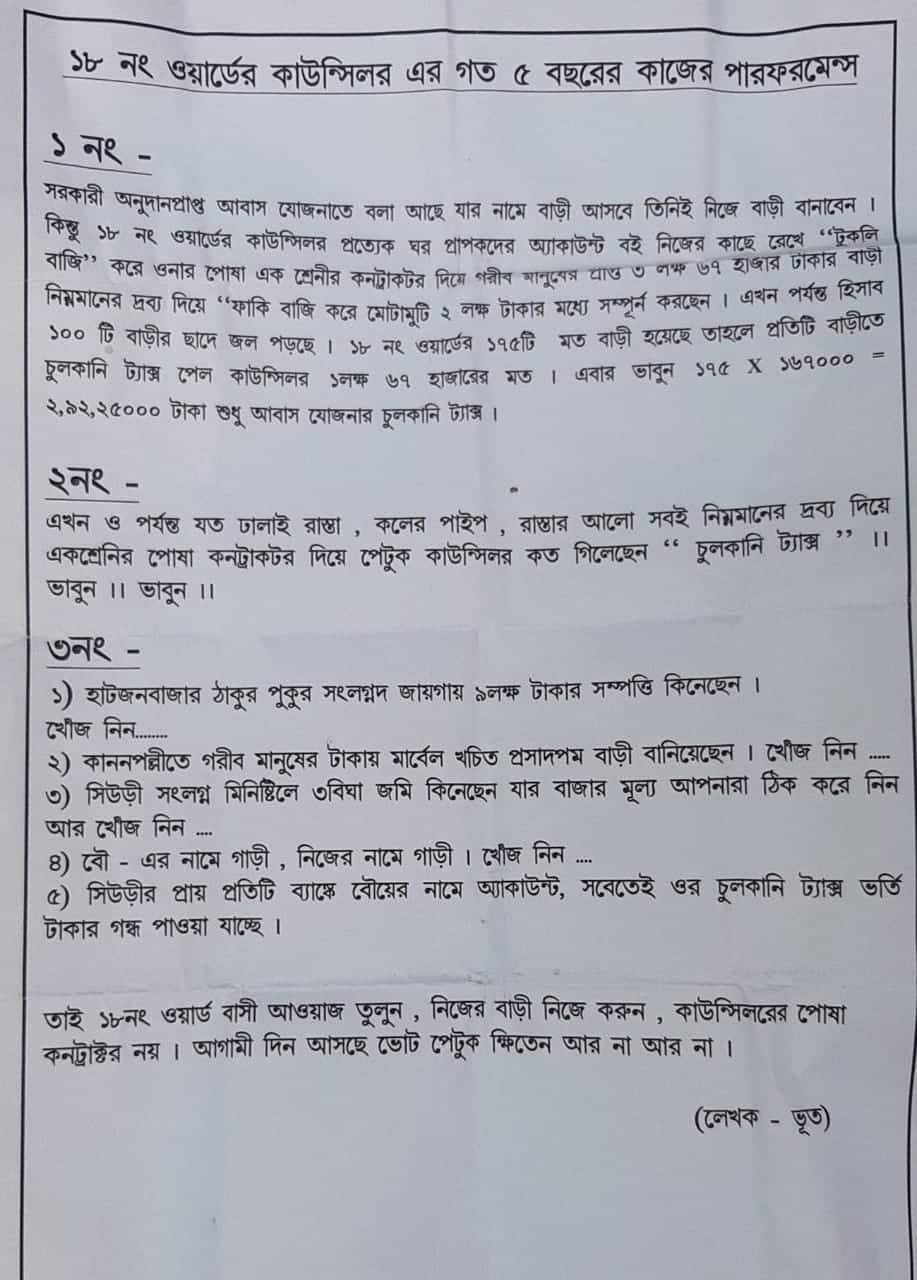 ১৮ নং ওয়ার্ডের কাউন্সিলর এর গত ৫ বছরের কাজের পারফরমেন্স
১ নং -
সরকারী অনুদানপ্রাপ্ত আবাস যোজনাতে বলা আছে যার নামে বাড়ী আসবে তিনিই নিজে বাড়ী বানাবেন ।
কিন্তু ১৮ নং ওয়ার্ডের কাউন্সিলর প্রত্যেক ঘর প্রাপকদের অ্যাকাউন্ট বই নিজের কাছে রেখে “টুকলি
বাজি” করে ওনার পোষা এক শ্রেনীর কনট্রাকটর দিয়ে গরীব মানুষের প্রাপ্ত ৩ লক্ষ ৬৭ হাজার টাকার বাড়ী
নিম্নমানের দ্রব্য দিয়ে “ফাকি বাজি করে মোটামুটি ২ লক্ষ টাকার মধ্যে সম্পূর্ন করছেন । এখন পর্যন্ত হিসাব
১০০ টি বাড়ীর ছাদে জল পড়ছে । ১৮ নং ওয়ার্ডের ১৭৫টি মত বাড়ী হয়েছে তাহলে প্রতিটি বাড়ীতে
চুলকানি ট্যাক্স পেল কাউন্সিলর ১লক্ষ ৬৭ হাজারের মত । এবার ভাবুন ১৭৫ X ১৬৭০০০ =
২,৯২,২৫০০০ টাকা শুধু আবাস যোজনার চুলকানি ট্যাক্স ।
২নং -
এখন ও পর্যন্ত যত ঢালাই রাস্তা , কলের পাইপ , রাস্তার আলো সবই নিম্নমানের দ্রব্য দিয়ে
একশ্রেনির পোষা কনট্রাকটর দিয়ে পেটুক কাউন্সিলর কত গিলেছেন “ চুলকানি ট্যাক্স ” ।।
ভাবুন ।। ভাবুন ।।
৩নং -
১) হাটজনবাজার ঠাকুর পুকুর সংলগ্নদ জায়গায় ৯লক্ষ টাকার সম্পত্তি কিনেছেন ।
খোঁজ নিন........
২) কাননপল্লীতে গরীব মানুষের টাকায় মার্বেল খচিত প্রসাদপম বাড়ী বানিয়েছেন । খোঁজ নিন .....
৩) সিউড়ী সংলগ্ন মিনিষ্টিলে ৩বিঘা জমি কিনেছেন যার বাজার মূল্য আপনারা ঠিক করে নিন
আর খোঁজ নিন ....
৪) বৌ - এর নামে গাড়ী , নিজের নামে গাড়ী । খোঁজ নিন ....
৫) সিউড়ীর প্রায় প্রতিটি ব্যাঙ্কে বৌয়ের নামে অ্যাকাউন্ট, সবেতেই ওর চুলকানি ট্যাক্স ভর্তি
টাকার গন্ধ পাওয়া যাচ্ছে ।
তাই ১৮নং ওয়ার্ড বাসী আওয়াজ তুলুন , নিজের বাড়ী নিজে করুন , কাউন্সিলরের পোষা
কনট্রাক্টর নয় । আগামী দিন আসছে ভোট পেটুক ক্ষিতেন আর না আর না ।
(লেখক - ভূত)